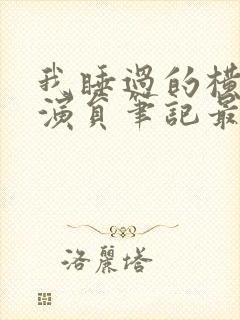 我睡過的橫
演員筆記最
洛麗塔